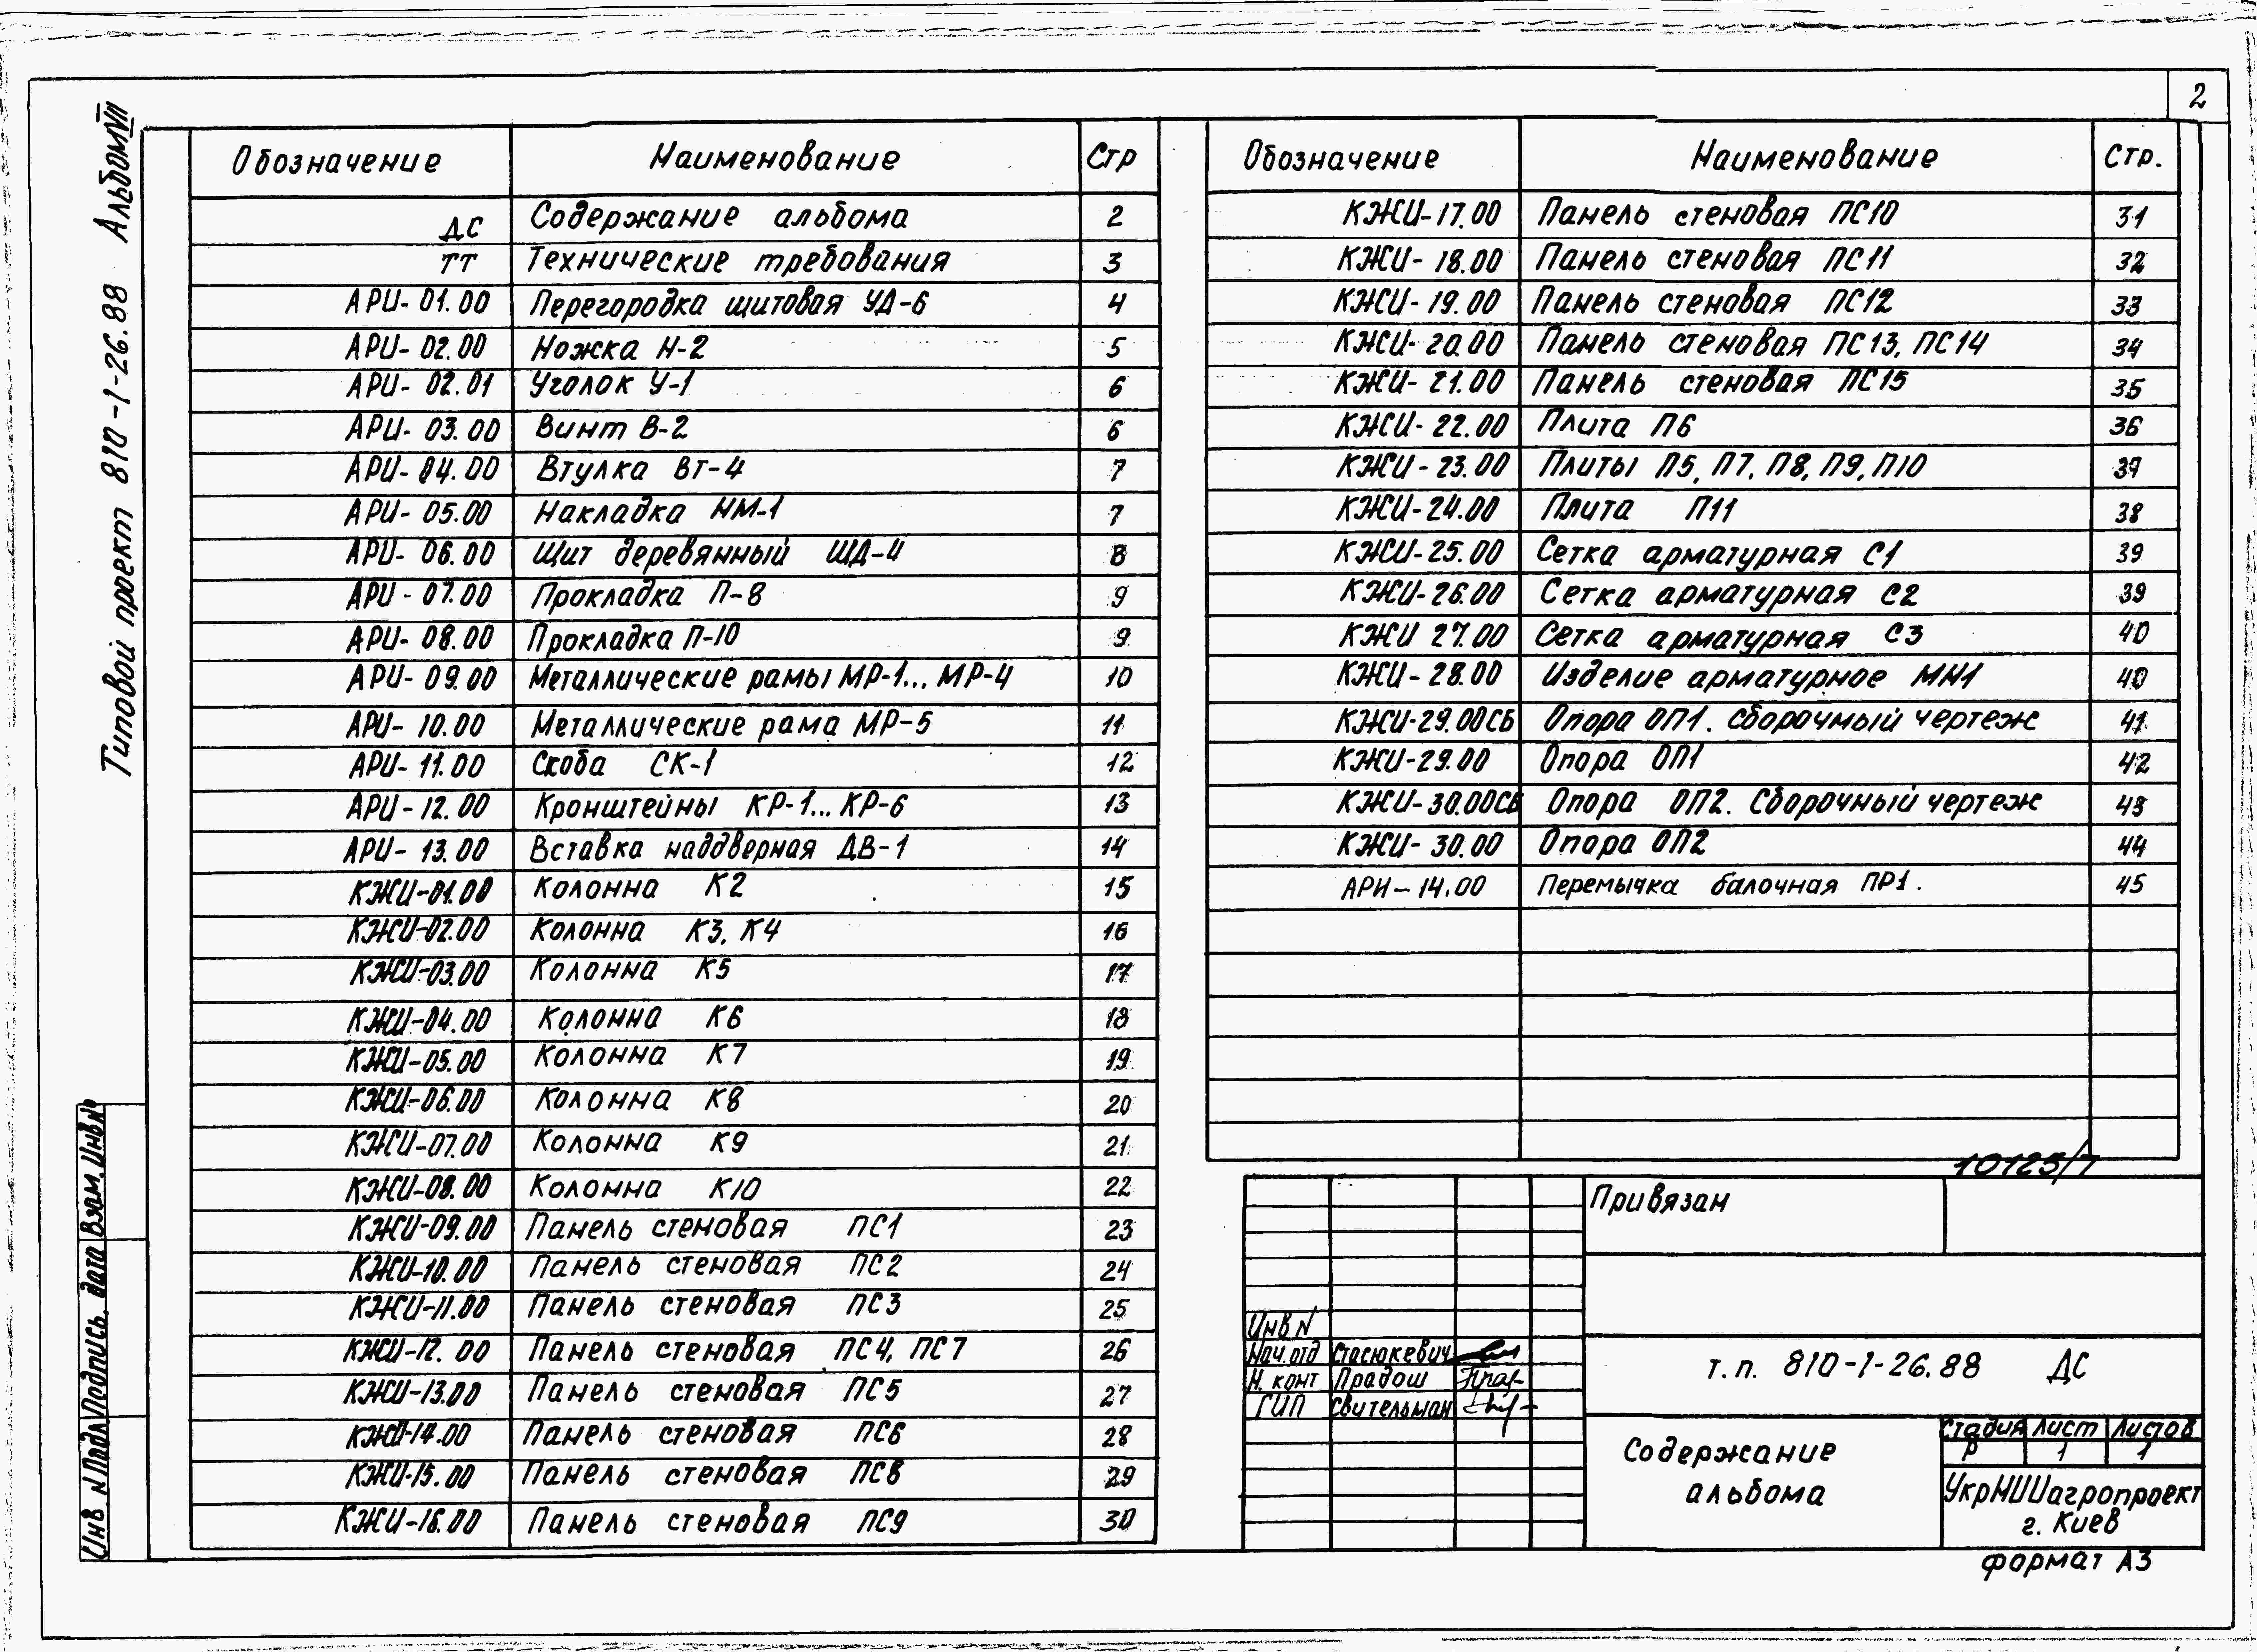 2
Типовой проект 810-1-26.88 Альбом VII
Обозначение Наименование Стр
ДС Содержание альбома 2
ТТ Технические требования 3
АРИ-01.00 Перегородка щитовая УД-6 4
АРИ-02.00 Ножка Н-2 5
АРИ-02.01 Уголок У-1 6
АРИ-03.00 Винт В-2 6
АРИ-04.00 Втулка ВТ-4 7
АРИ-05.00 Накладка НМ-1 7
АРИ-06.00 Щит деревянный ЩД-4 8
АРИ-07.00 Прокладка П-8 9
АРИ-08.00 Прокладка П-10 9
АРИ-09.00 Металлические рамы МР-1... МР-4 10
АРИ-10.00 Металлические рама МР-5 11
АРИ-11.00 Скоба СК-1 12
АРИ-12.00 Кронштейны КР-1... КР-6 13
АРИ-13.00 Вставка наддверная ДВ-1 14
КЖИ-01.00 Колонна К2 15
КЖИ-02.00 Колонна К3, К4 16
КЖИ-03.00 Колонна К5 17
КЖИ-04.00 Колонна К6 18
КЖИ-05.00 Колонна К7 19
КЖИ-06.00 Колонна К8 20
КЖИ-07.00 Колонна К9 21
КЖИ-08.00 Колонна К10 22
КЖИ-09.00 Панель стеновая ПС1 23
КЖИ-10.00 Панель стеновая ПС2 24
КЖИ-11.00 Панель стеновая ПС3 25
КЖИ-12.00 Панель стеновая ПС4, ПС7 26
КЖИ-13.00 Панель стеновая ПС5 27
КЖИ-14.00 Панель стеновая ПС6 28
КЖИ-15.00 Панель стеновая ПС8 29
КЖИ-16.00 Панель стеновая ПС9 30
Обозначение Наименование Стр.
КЖИ-17.00 Панель стеновая ПС10 31
КЖИ-18.00 Панель стеновая ПС11 32
КЖИ-19.00 Панель стеновая ПС12 33
КЖИ-20.00 Панель стеновая ПС13, ПС14 34
КЖИ-21.00 Панель стеновая ПС15 35
КЖИ-22.00 Плита П6 36
КЖИ-23.00 Плиты П5, П7, П8, П9, П10 37
КЖИ-24.00 Плита П11 38
КЖИ-25.00 Сетка арматурная С1 39
КЖИ-26.00 Сетка арматурная С2 39
КЖИ 27.00 Сетка арматурная С3 40
КЖИ-28.00 Изделие арматурное МН1 40
КЖИ-29.00СБ Опора ОП1. Сборочный чертеж 41
КЖИ-29.00 Опора ОП1 42
КЖИ-30.00СБ Опора ОП2. Сборочный чертеж 43
КЖИ-30.00 Опора ОП2 44
АРИ-14.00 Перемычка балочная ПР1. 45
10125/7
Привязан
Инв N
Нач.отд Стасюкевич
Н. конт Прадош
ГИП Свительман
т.п. 810-1-26.88 ДС
Содержание альбома
Стадия Лист Листов
Р 1 1
УкрНИИагропроект
г. Киев
формат А3
Инв N Подл Подпись. дата Взам. Инв N°